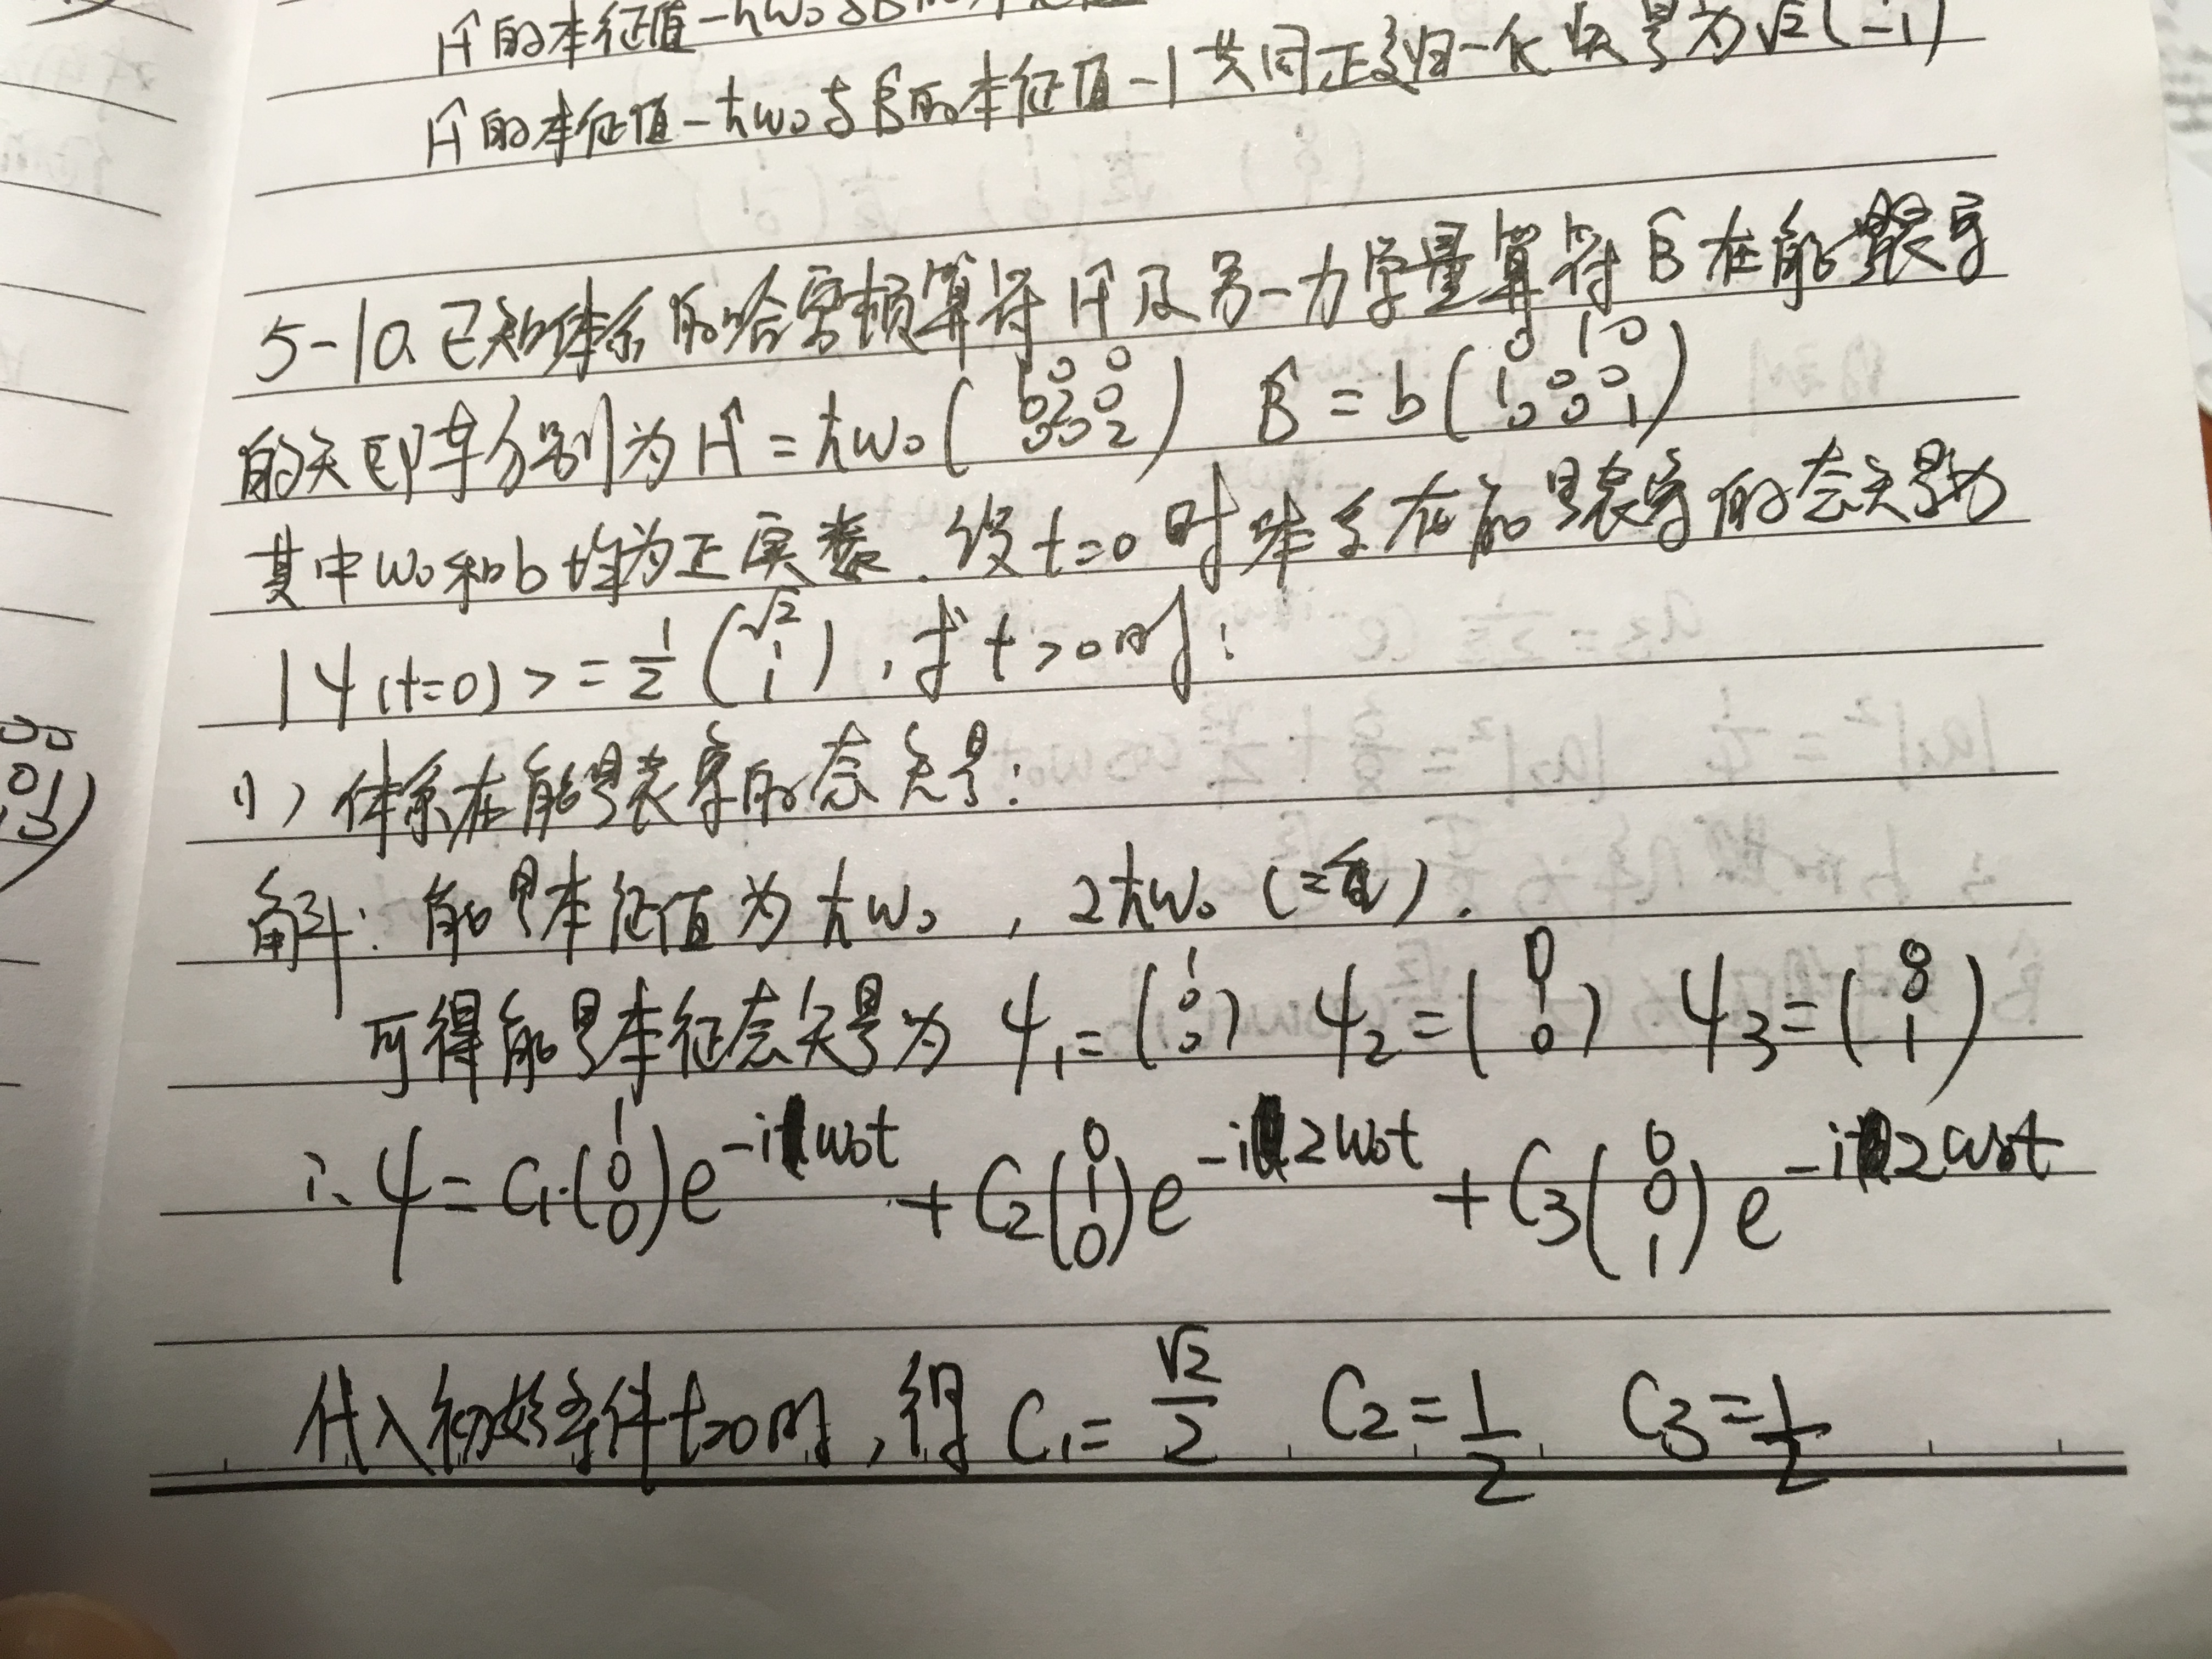 Ĥ的本征值-ħω₀与B̂的本征值
Ĥ的本征值-ħω₀与B̂的本征值-1共同正交归一化矢量为√2(-1)
5-10.已知体系的哈密顿算符Ĥ及另一力学量算符B̂在能量表象
的矩阵分别为Ĥ=ħω₀(1 0 0 / 0 2 0 / 0 0 2) B̂=b(0 1 0 / 1 0 0 / 0 0 1)
其中ω₀和b均为正实数.设t=0时体系在能量表象的态矢量为
|ψ(t=0)>=1/2(√2 / 1 / 1),求t>0时:
(1)体系在能量表象的态矢量:
解:能量本征值为ħω₀,2ħω₀(二重).
可得能量本征态矢量为ψ₁=(1 / 0 / 0) ψ₂=(0 / 1 / 0) ψ₃=(0 / 0 / 1)
∴ψ=C₁·(1 / 0 / 0)e^(-iω₀t)+C₂(0 / 1 / 0)e^(-i2ω₀t)+C₃(0 / 0 / 1)e^(-i2ω₀t)
代入初始条件t=0时,得C₁=√2/2 C₂=1/2 C₃=1/2